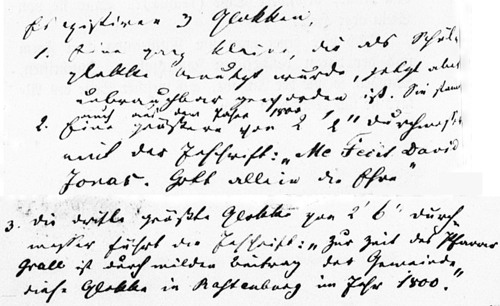 Es existiren 3 Glokken,
1. Eine ganz kleine, die als Schul-
glokke benutzt wurde, jetzt aber
unbrauchbar geworden ist. Sie stamt
auch aus dem Jahre 1800
2. Eine größere von 2' 2" Durchmesser
mit der Inschrift: „Me Fecit David
Jonas. Gott allein die Ehre"
3. die dritte größte Glokke von 2' 6' durch-
messer führt die Inschrift: „Zur Zeit des Pfarrer
Grall ist durch milden Beitrag der Gemeinde
diese Glokke in Rastenburg im Jahr 1800."